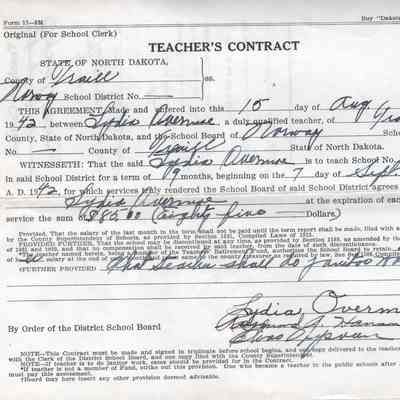 Form 15—8M Buy "Dakota
Original (For School Clerk)
TEACHER'S CONTRACT
STATE OF NORTH DAKOTA,
County of Traill ss.
Norway School District No. —
THIS AGREEMENT, Made and entered into this 15 day of Aug
1942 between Lydia Overmoe a duly qualified teacher, of
County, State of North Dakota, and the School Board of Norway Scho
No. — County of Traill State of North Dakota.
WITNESSETH: That the said Lydia Overmoe is to teach School No.
in said School District for a term of 9 months, beginning on the 7 day of Sept
A. D. 1942, for which services truly rendered the School Board of said School District agrees
Lydia Overmoe at the expiration of each
service the sum of $85.00 (eighty five Dollars.)
Provided, That the salary of the last month in the term shall not be paid until the term report shall be made, filed with a
by the County Superintendent of Schools, as provided by Section
PROVIDED FURTHER, That the school may be discontinued at any time, as provided by Section 1188, as amended by the
of 1931 and 1933, and that no compensation shall be received by said teacher, from the date of such discontinuance.
The teacher named herein, being a member of the Teachers' Retirement Fund, authorizes the Board to retain
of salary at the end of the county treasurer as required by law.
‡(FURTHER PROVIDED: That teacher shall do janitor
Lydia Overm
By Order of the District School Board
NOTE—This Contract must be made and signed in triplicate before school begins, one copy delivered to the teacher
with the Clerk of the District School Board, and one copy filed with the County Superintendent.
NOTE—If teacher is to do janitor work, same should be provided for in the Contract.
*If teacher is not a member of Fund, strike out this provision. One who became a teacher in the public schools after
must pay this assessment.
‡Board may here insert any other provision deemed advisable.